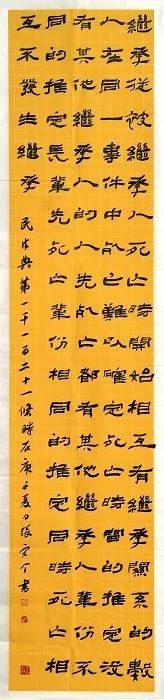 繼承從被繼承人死亡時開始相互有繼承關系的數
人在同一事件中死亡難以確定死亡時間的推定沒
有其他繼承人的人先死亡都有其他繼承人輩份不
同的推定長輩先死亡輩份相同的推定同時死亡相
互不發生繼承
民法典第一千一百二十一條時在庚子夏日張書